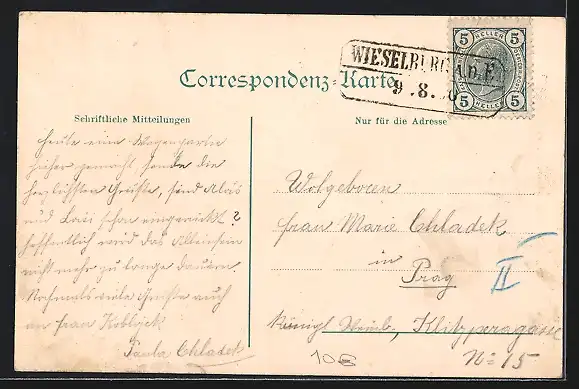 WIESELBURG A.D.E.
9.8.
5 HELLER 5
5 HELLER 5
Correspondenz-Karte
Schriftliche Mitteilungen
Nur für die Adresse
Heute eine Wagenpartie
hieher gemacht sende die
herzlichsten Grüße, sind
und schon eingerückt?
hoffentlich wird das Alleinsein
nicht mehr zu lange dauern.
Nochmals viele Grüße auch
an Frau
Paula Chladek
Wolgeboren
Frau Marie Chladek
in
Prag
II
Königl Weinb.,
No 15
10€